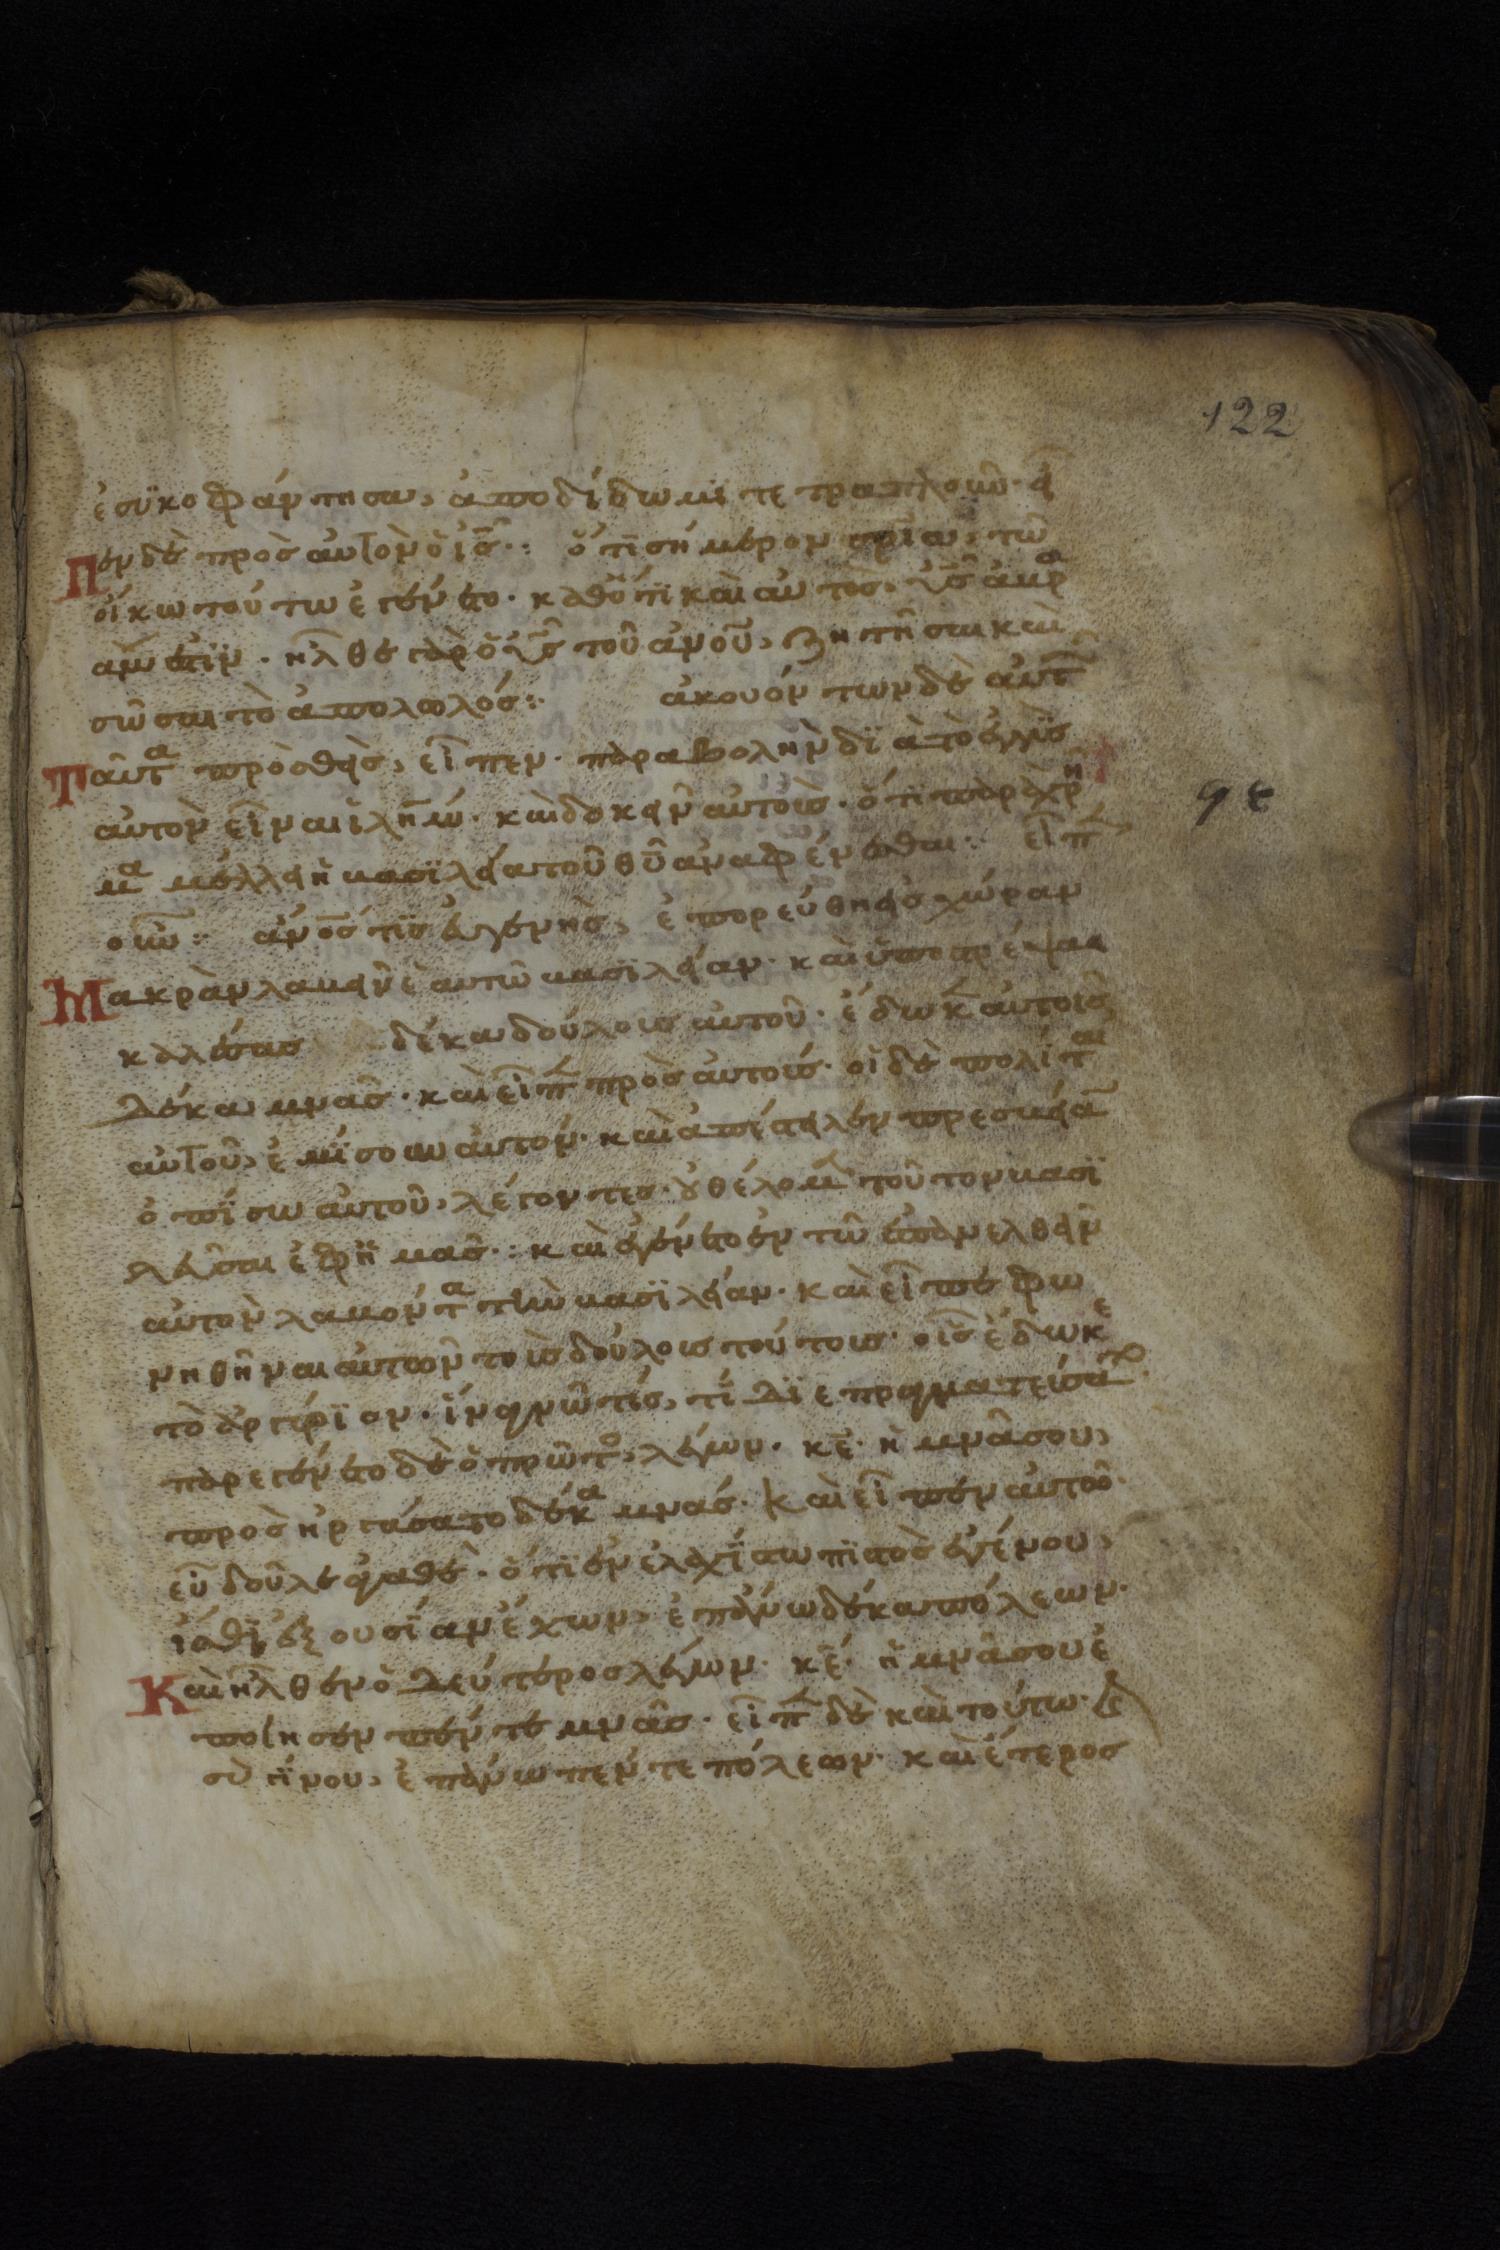 122
ἐσϋκοφάντησα, ἀποδίδωμϊ τετραπλοῦν· εἶ
πεν δὲ πρὸς αὐτὸν ὁ ι̅ς̅·: ὅτϊ σήμερον σρία, τῶ
οἴκω τούτω ἐγένετο· καθότϊ καὶ αὐτὸς, υ̅ς̅ ἀβρα
αμ ἐστϊν· ἦλθε γὰρ ὁ υ̅ς̅ τοῦ ανου, ζητῆσαι καὶ
σῶσαι τὸ ἀπολωλός:· ἀκουόντων δὲ αὐτ
ταῦτα προσθεὶς, εἶπεν· παραβολὴν δϊὰ τὸ ἐγγϊς
αὐτὸν εἶναι ϊλημ· καὶ δοκεῖν αὐτοὺς· ὅτι παραχρη
μα μέλλει ἡ βασϊλεία τοῦ θυ ἀναφένεσθαι:· εἶπ
οὖν:· ἄνος τϊς εὐγενὴς, ἐπορεύθη εἰς χώραν
μακρὰν λαβεῖν ἑαυτῶ βασϊλείαν· καὶ ὑποστρέψαι
καλέσας δέκα δούλους αὐτοῦ· ἔδωκ αὐτοῖς
δέκα μνᾶς· καὶ εἶπ πρὸς αὐτούς· οἱ δὲ πολίται
αὐτοῦ, ἐμϊσουν αὐτόν· καὶ ἀπέστειλεν πρεσβεία
ὀπϊσω αὐτοῦ, λέγοντες· οὐ θέλομ τοῦτον βασϊ
λεῦσαι ἐφ ἡμᾶς·: καὶ ἐγένετο ἐν τῶ ἐπανελθεῖν
αὐτὸν λαβόντα τὴν βασϊλείαν· καὶ εἶπε φω
νηθῆναι αὐτῶ τοὺς δούλους τούτους· οἷς ἔδωκε
τὸ ἀργύρϊον· ἵνα γνῶ τίς, τί δϊεπραγματεύσατο·
παρεγένετο δὲ ὁ πρῶτο, λέγων· κ̅ε̅· ἡ μνᾶ σου,
προσηργάσατο δέκα μνάς· καὶ εἶπεν αὐτῶ·
εὖ δοῦλε ἀγαθὲ· ὅτϊ ἐν ἐλαχϊστω πϊστὸς ἐγένου,
ἴσθϊ ἐξουσϊαν ἔχων, ἐπάνω δέκα πόλεων·
καὶ ἦλθεν ὁ δεύτερος λέγων· κ̅ε̅· ἡ μνᾶ σου ἐ
ποίησεν πέντε μνᾶς· εἶπ δὲ καὶ τούτω· καὶ
σὺ γϊνου, ἐπάνω πέντε πόλεων· καὶ ἕτερος